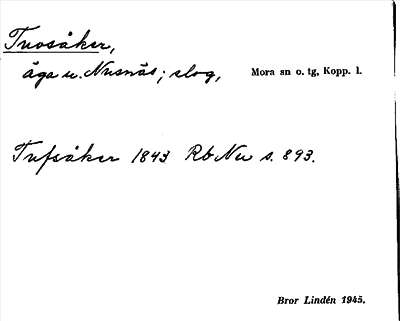 Tuosåker,
äga u. Nusnäs; slog, Mora sn o. tg, Kopp. l.
Tufsåker 1843 Rb Nu s. 893.
Bror Lindén 1945.